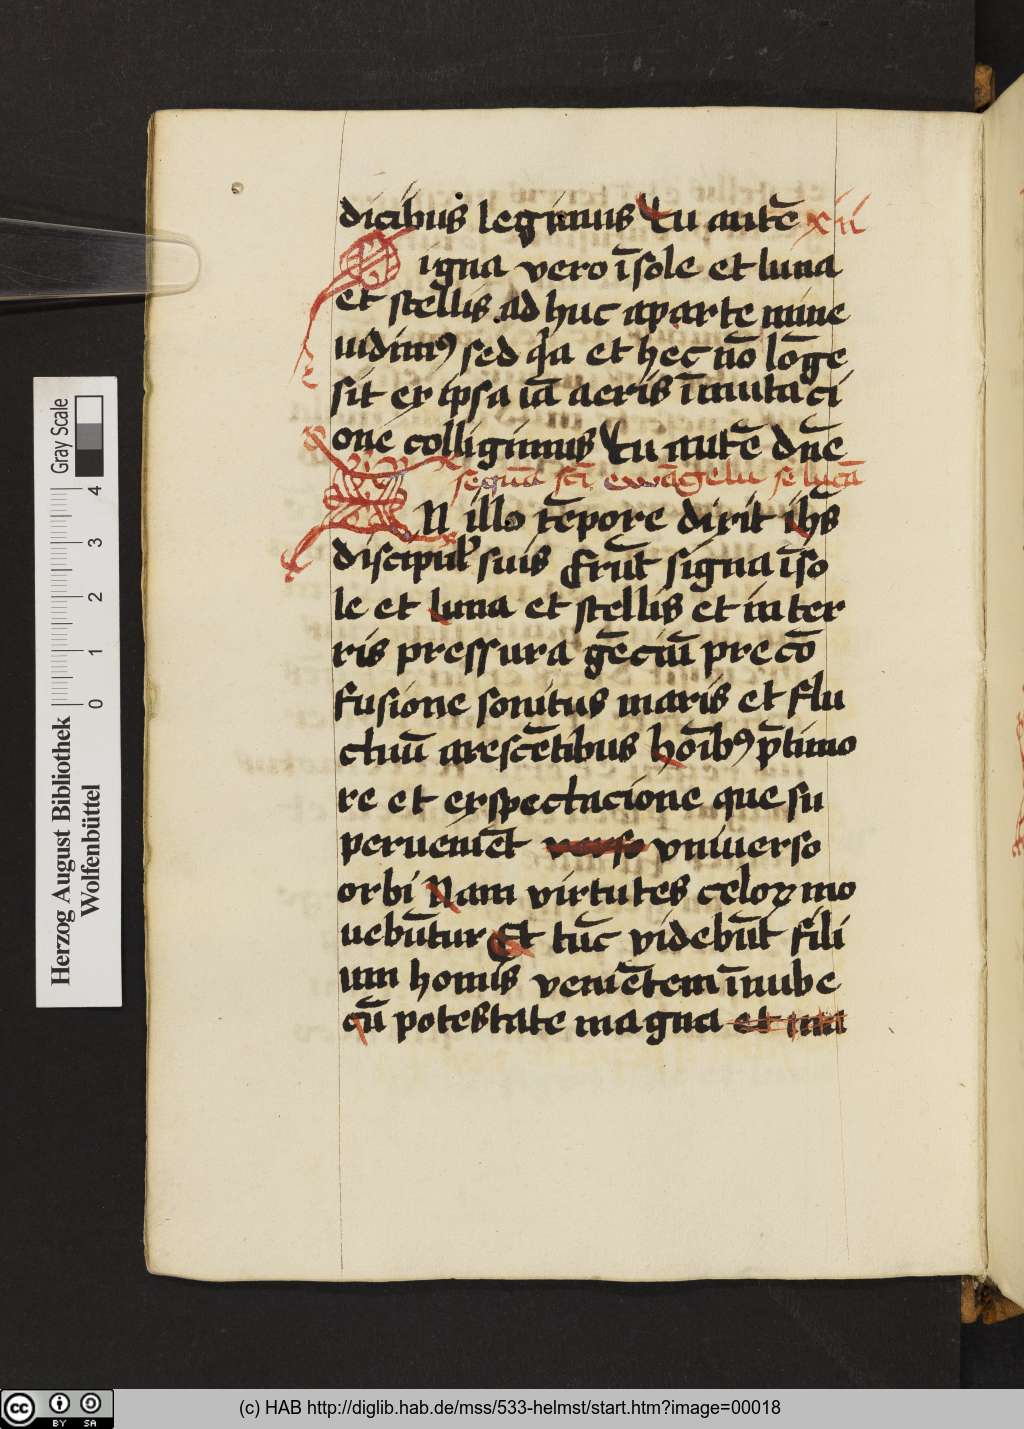 dicibus legimus Tu autē xii
Signa vero ī sole et luna
et stellis ad huc aparte mine
uidimꝰ sed qͥa et hec nō lōge
sit ex ipsa iā aeris īmutaci
one colligimus Tu autē dn̄e
sequīa scī ewāgelii se lucā
IN illo tēpore dixit ih̄s
discipul' suis Erūt signa ī so
le et luna et stellis et in ter
ris pressura gēciū pre cō
fusione sonitus maris et flu
ctuū arescētibus hōībꝰ p̄ timo
re et exspectacione que su
peruenīēt verso vniuerso
orbi Nam virtutes celoꝝ mo
uebūtur Et tūc videbūt fili
um homīs venīētem ī nube
cū potestate magna et ma
Herzog August Bibliothek
Wolfenbüttel
0 1 2 3 4
Gray Scale
cc BY SA
(c) HAB http://diglib.hab.de/mss/533-helmst/start.htm?image=00018